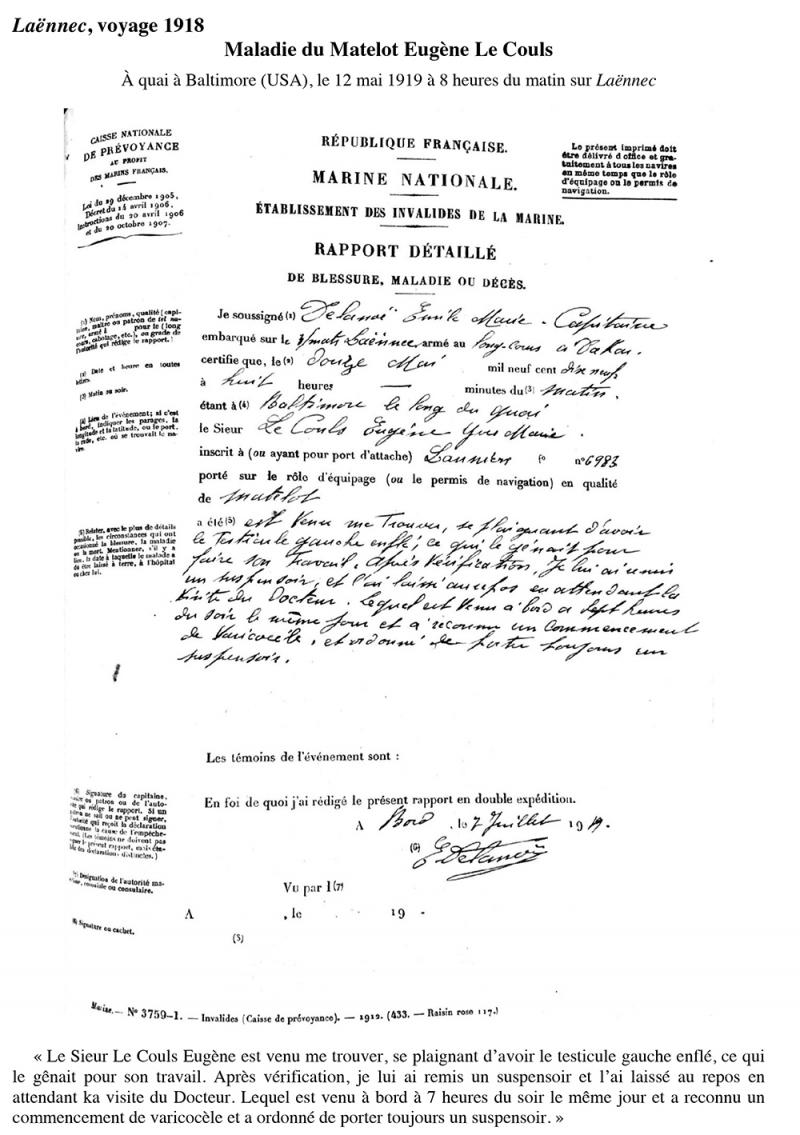 Laënnec, voyage 1918
Maladie du Matelot Eugène Le Couls
À quai à Baltimore (USA), le 12 mai 1919 à 8 heures du matin sur Laënnec
CAISSE NATIONALE
DE PRÉVOYANCE
AU PROFIT
DES MARINS FRANÇAIS.
Loi du 29 décembre 1905,
Décret du 14 avril 1906,
Instructions du 20 avril 1906
et du 20 octobre 1907.
RÉPUBLIQUE FRANÇAISE.
MARINE NATIONALE.
ÉTABLISSEMENT DES INVALIDES DE LA MARINE.
RAPPORT DÉTAILLÉ
DE BLESSURE, MALADIE OU DÉCÈS.
Le présent imprimé doit
être délivré d office et gra-
tuitement à tous les navires
en même temps que le rôle
d'équipage ou le permis de
navigation.
(1) Nom, prénoms, qualité (capi-
taine, maître ou patron de tel na-
vire, armé à pour le (long
cours, cabotage, etc.), ou grade de
l'autorité qui rédige le rapport.)
(2) Date et heure en toutes
lettres.
(3) Matin ou soir.
(4) Lieu de l'événement; si c'est
à bord, indiquer les parages, la
longitude et la latitude, ou le port,
la rade, etc. où se trouvait le na-
vire.
(5) Relater, avec le plus de détails
possible, les circonstances qui ont
occasionné la blessure, la maladie
ou la mort. Mentionner, s'il y a
lieu, la date à laquelle le malade a
dû être laissé à terre, à l'hôpital
ou chez lui.
Je soussigné (1) Delanoë Emile Marie - Capitaine
embarqué sur le 3/mats Laënnec, armé au long-cours à Dakar.
certifie que, le (2) Douze Mai mil neuf cent dix neuf
à huit heures — minutes du (3) matin.
étant à (4) Baltimore le long du quai
le Sieur Le Couls Eugène Yves Marie.
inscrit à (ou ayant pour port d'attache) Lannion fo n° 6983
porté sur le rôle d'équipage (ou le permis de navigation) en qualité
de matelot
a été (5) est venu me trouver, se plaignant d'avoir
le testicule gauche enflé, ce qui le gênait pour
faire son travail. Après vérification, Je lui ai remis
un suspensoir, et l'ai laissé au repos en attendant la
visite du Docteur. Lequel est venu à bord à sept heures
du soir le même jour et a reconnu un commencement
de varicocèle, et ordonné de porter toujours un
suspensoir.
Les témoins de l'événement sont :
(6) Signature du capitaine,
maître ou patron ou de l'auto-
rité qui rédige le rapport. Si un
ne sait ou ne peut signer,
l'autorité qui reçoit la déclaration
mentionne la cause de l'empêche-
ment. (Les témoins ne doivent pas
signer le présent rapport, mais
des déclarations distinctes.)
En foi de quoi j'ai rédigé le présent rapport en double expédition.
A Bord, le 7 Juillet 1919.
(6) E Delanoë
(7) Désignation de l'autorité ma-
ritime, coloniale ou consulaire.
Vu par l (7)
A , le 19
(8) Signature ou cachet.
(5)
Marine. — N° 3759-1. — Invalides (Caisse de prévoyance). — 1912. (433. — Raisin rose 117.)
« Le Sieur Le Couls Eugène est venu me trouver, se plaignant d'avoir le testicule gauche enflé, ce qui
le gênait pour son travail. Après vérification, je lui ai remis un suspensoir et l'ai laissé au repos en
attendant ka visite du Docteur. Lequel est venu à bord à 7 heures du soir le même jour et a reconnu un
commencement de varicocèle et a ordonné de porter toujours un suspensoir. »